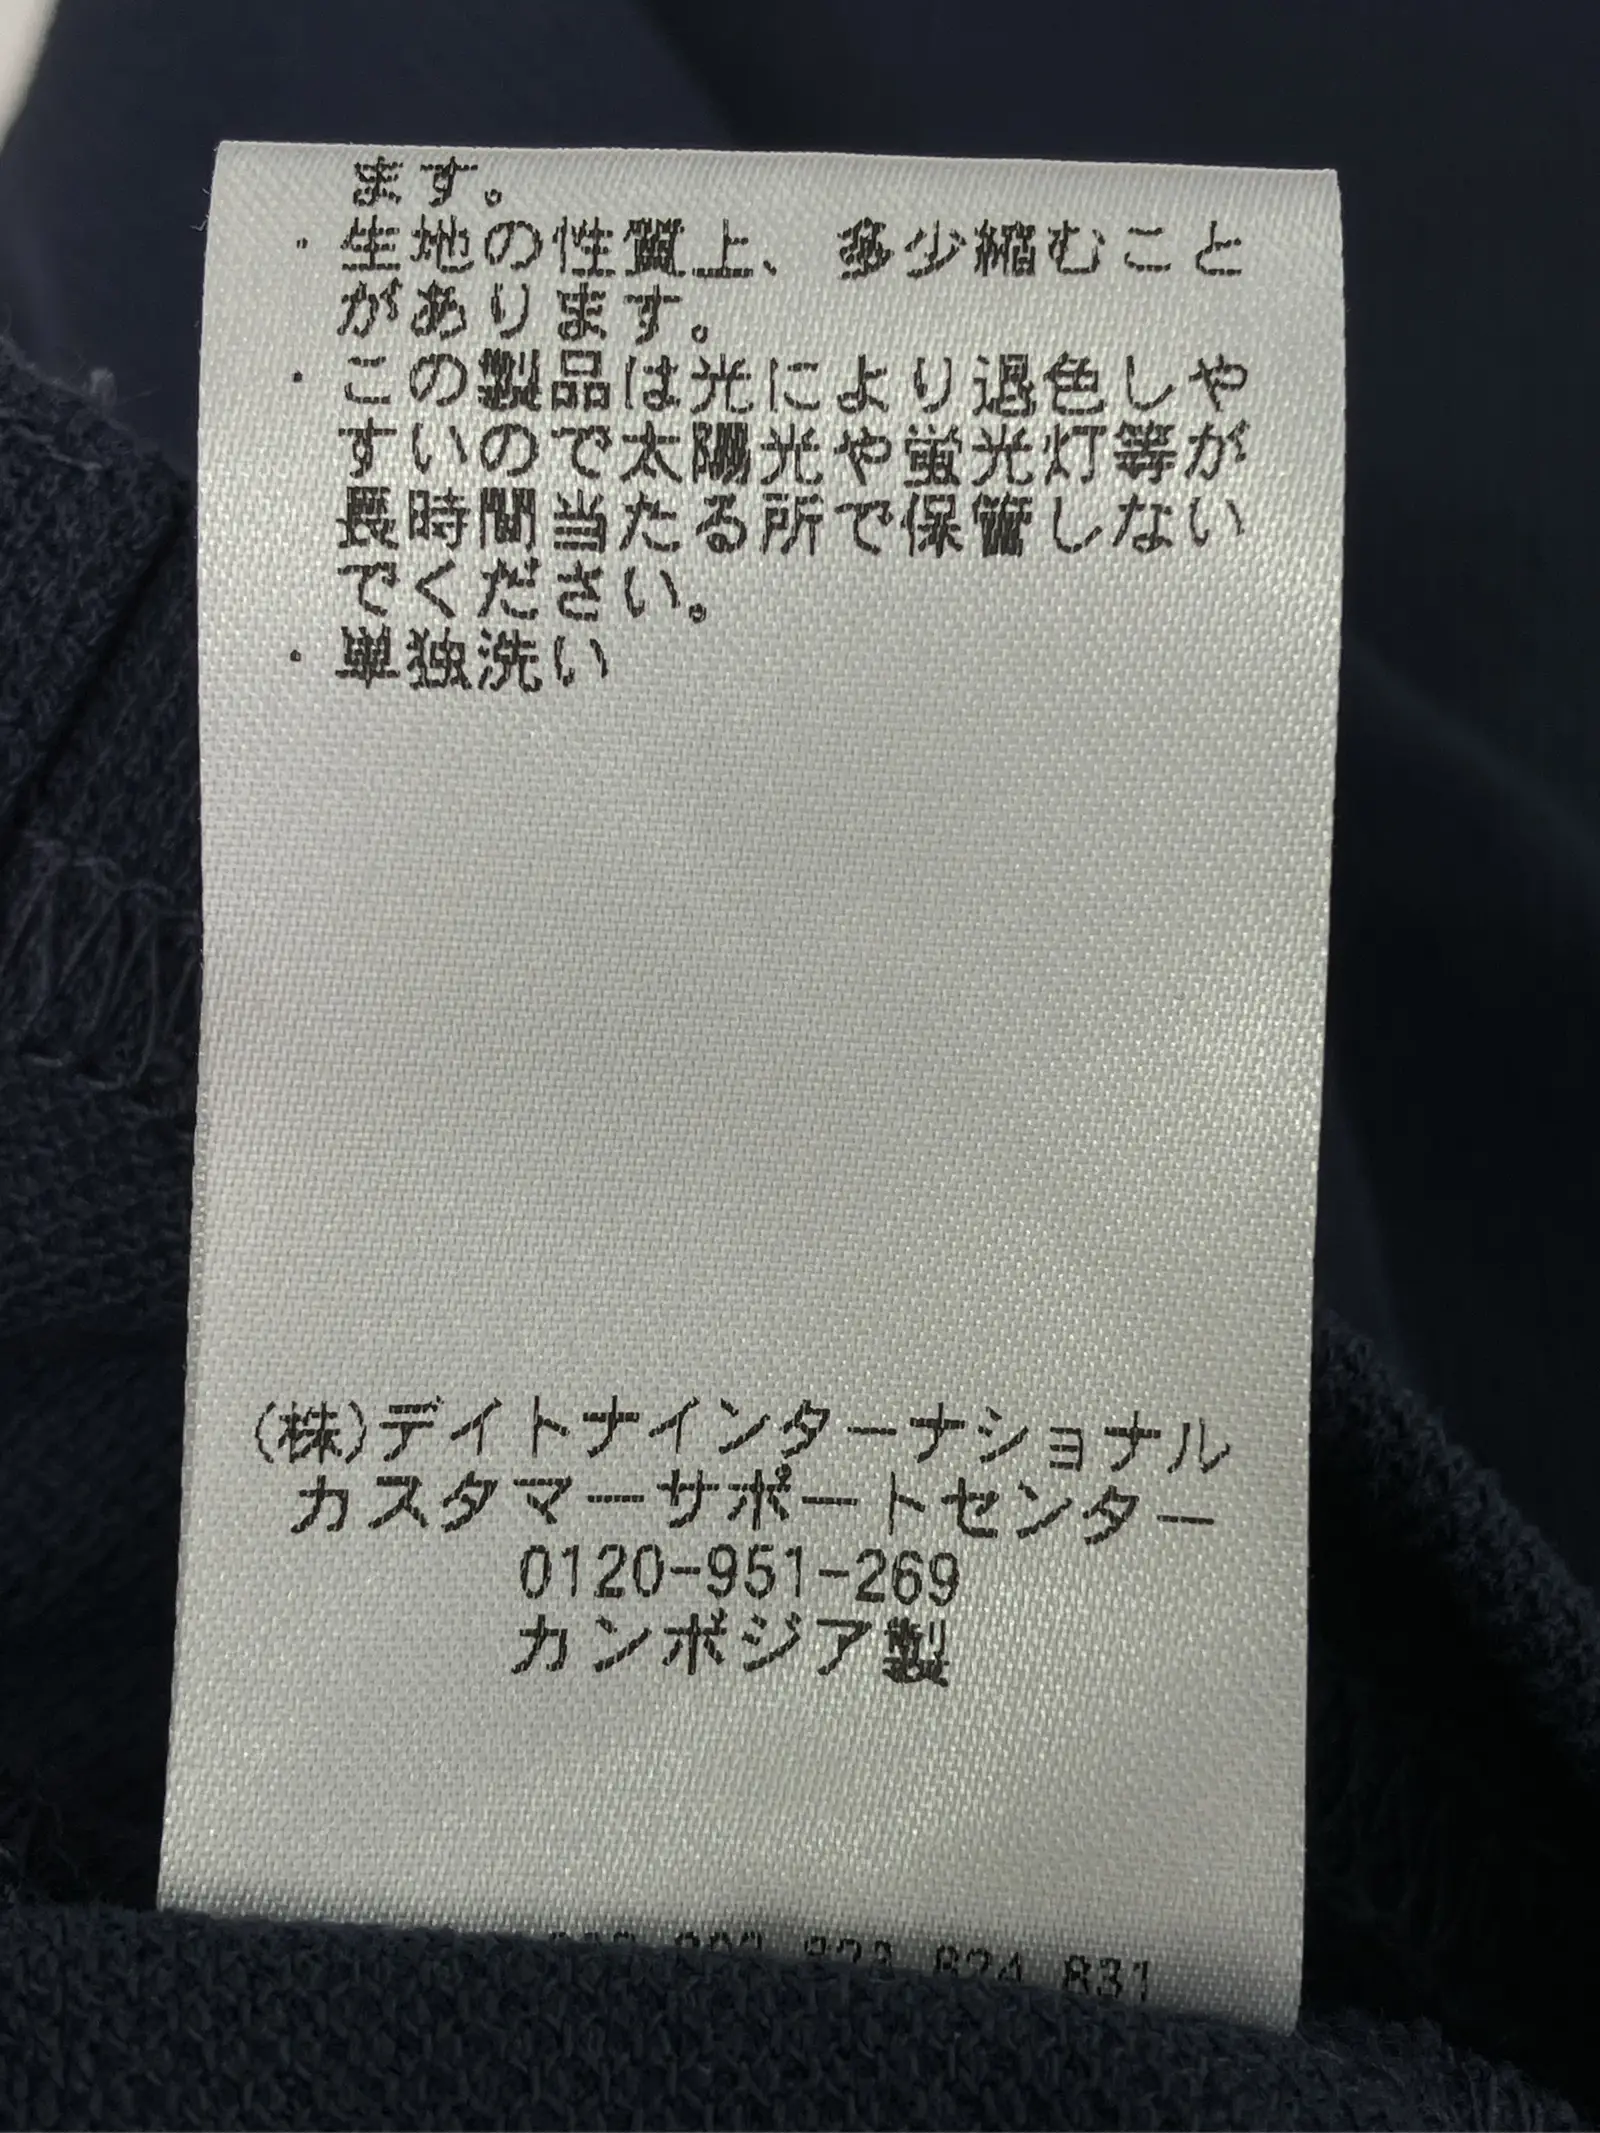 ます。
・生地の性質上、多少縮むこと
があります。
・この製品は光により退色しや
すいので太陽光や蛍光灯等が
長時間当たる所で保管しない
でください。
・単独洗い
(株)デイトナインターナショナル
カスタマーサポートセンター
0120-951-269
カンボジア製
823 824 831